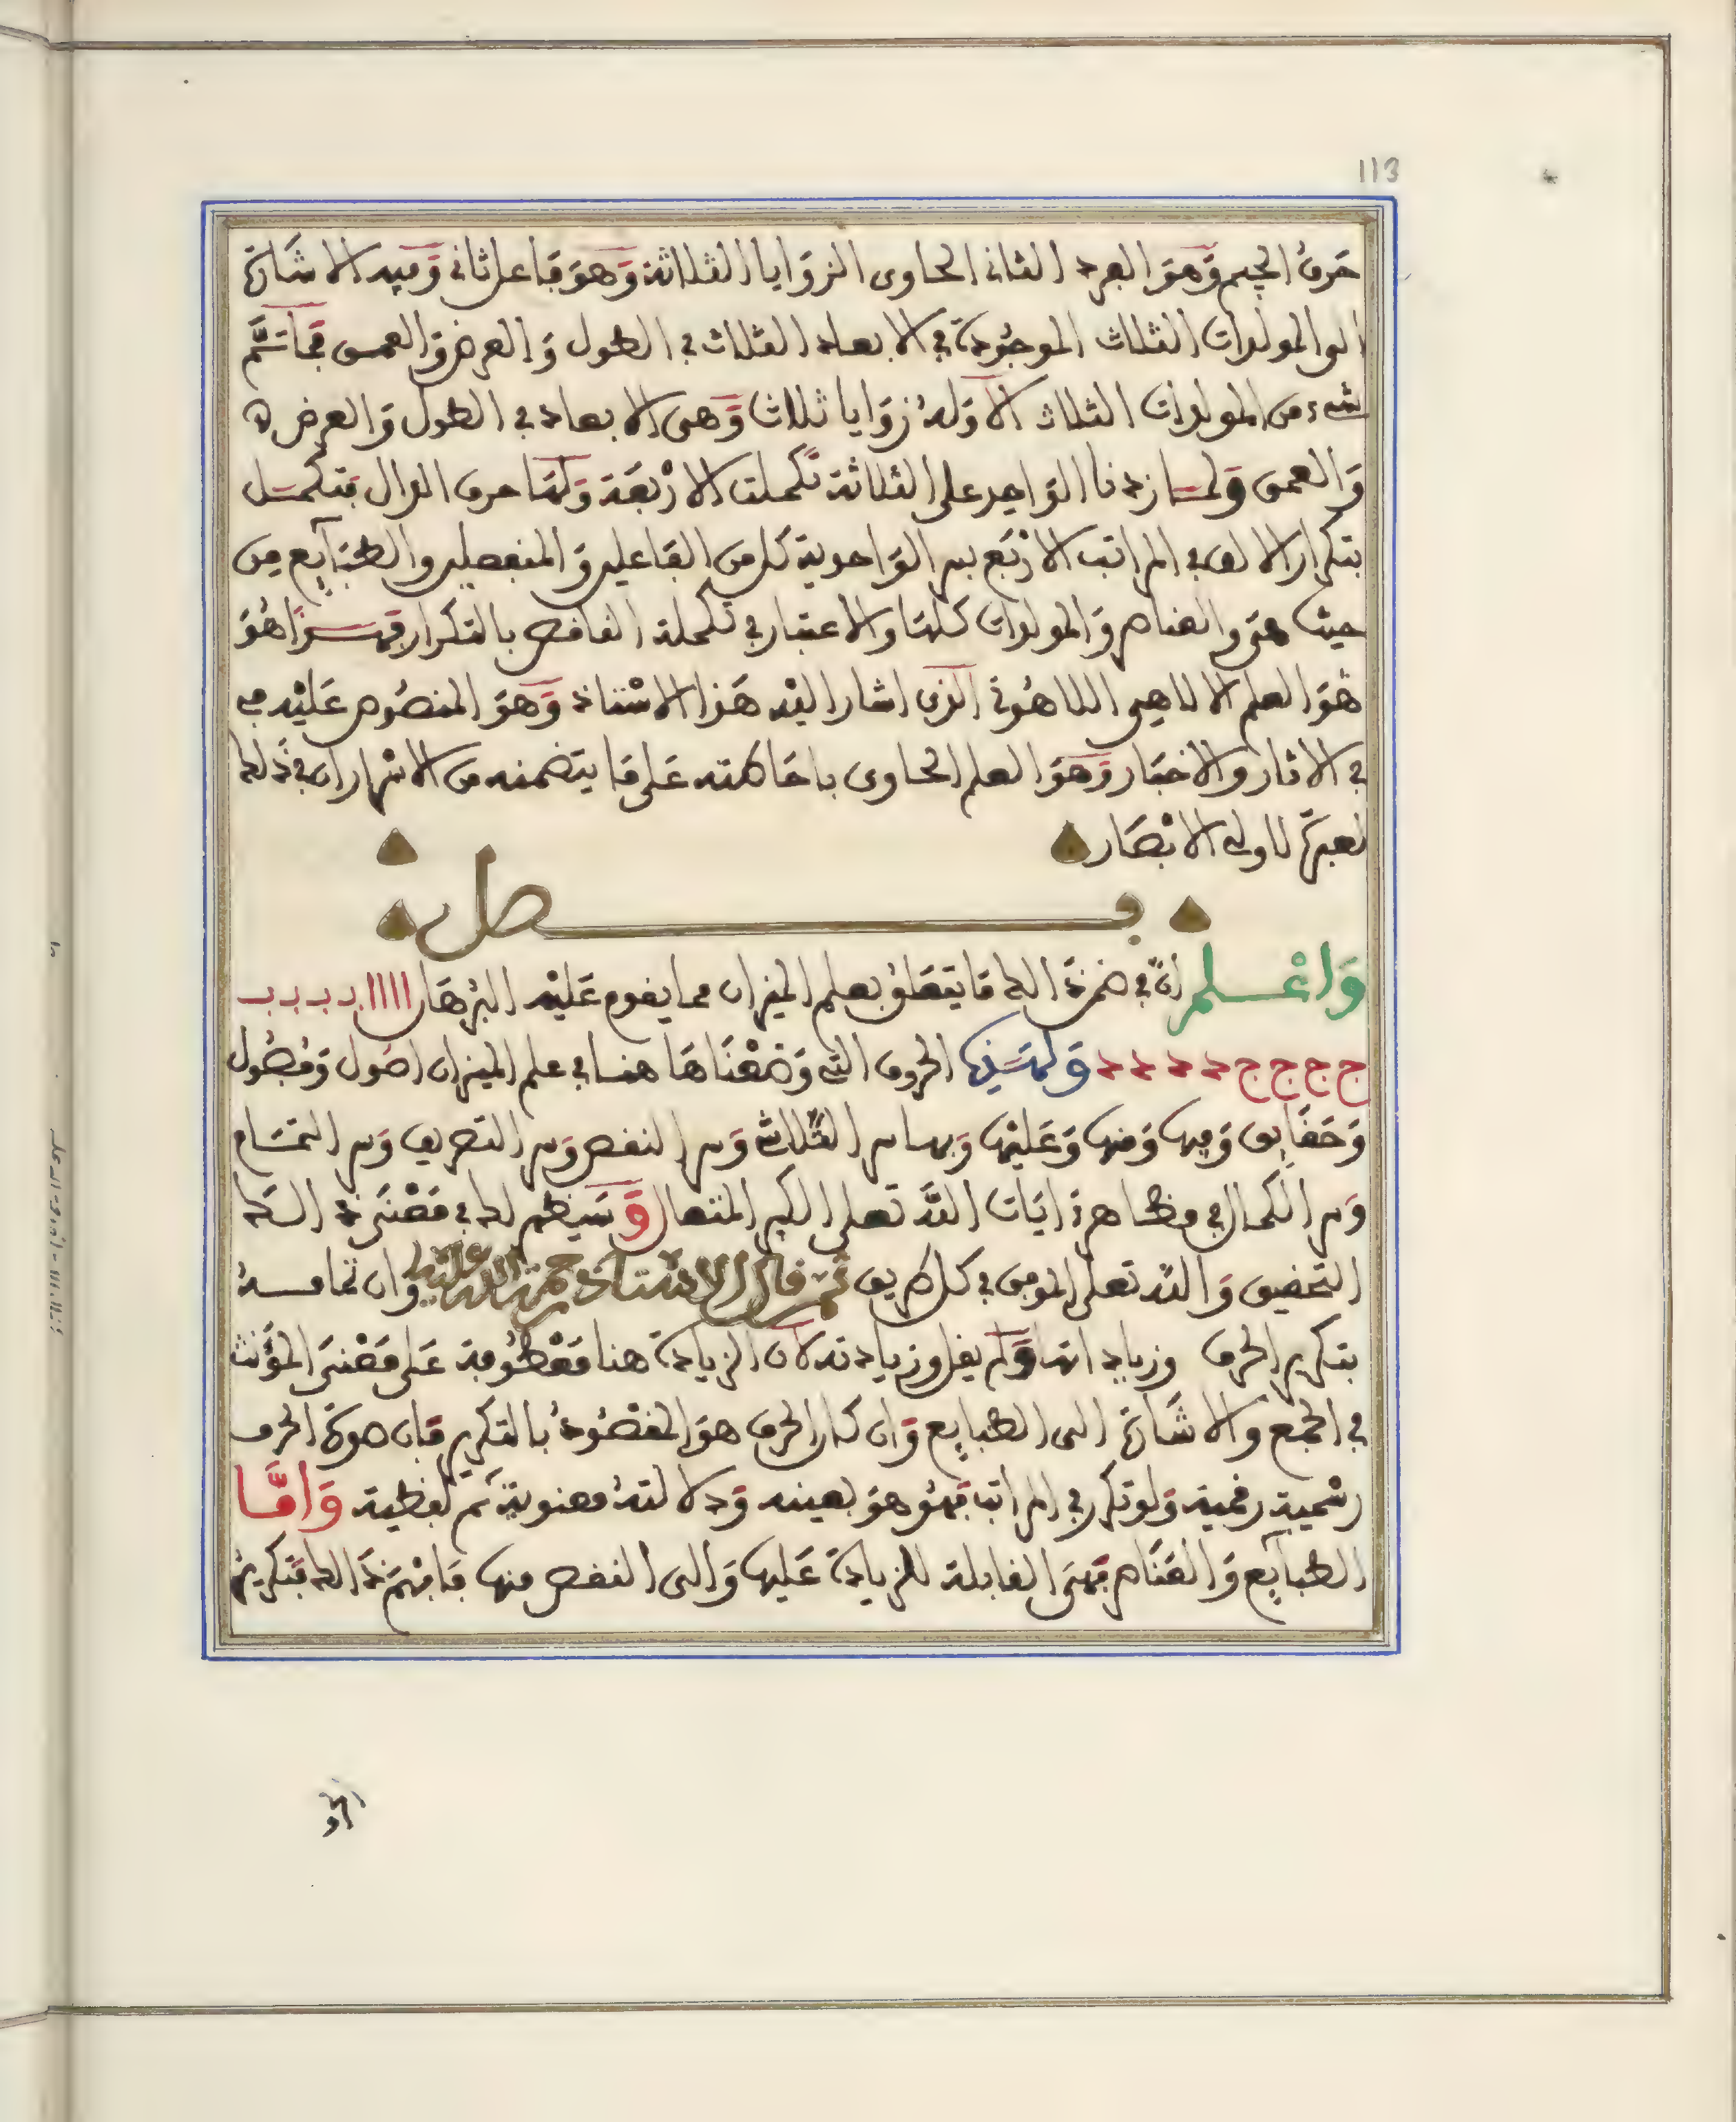 113
حرف الجيم وَهوَ الفرد الثاني الحاوى الزوَايا الثلاثة وَهوَ فاعل ثاني وَفيه الاشارة
الى المولدات الثلاث الموجودة في الابعاد الثلاث في الطول وَالعرض وَالعمق فما ثَمَّ
شىء من المولدات الثلاث الا وَله زوَايا ثلاث وَهى الابعاد في الطول وَالعرض
وَالعمق وَلما زدنا الوَاحد على الثلاثة تكملت الارْبَعَة وَلها حرف الدال فتكمل
بتكرار الالف في المراتب الارْبَع سر الوَاحدية كل من الفاعلين وَالمنفعلين والطبَآيِع مِن
حيث هىَ والعناصر وَالمولدات كلها والاعتبار في تكملة الناقص بالتكرار فهذا هُوَ
هوَ العلم الالاهي اللاهُوتي الذي اشار اليْه هَذا الاسْتاذ وَهوَ المنصُوص عَليْه في
في الاثار والاخبَار وَهوَ العلم الحاوى باحَاطته عَلى مَا يتضمنه من الاسرار ان في ذَلك
لعبرة لاولي الابْصَار
فصل
وَاعْلم ان في ضمن ذَالك مَا يتَعَلق بعلم الميزان مما يقوم عَليْه البُرهَان ا ا ا ا ب ب ب ب
ج ج ج ج د د د د وَلهَذِه الحروف التي وَضعْنَاهَا هنا في علم الميزان اصُول وَفصُول
وَحَقَايِق وَفيها وَمنها وَعَليْها وَبها سر الثلاث وَسر النقص وَسر التصريف وَسر التمَام
وَسر الكمال في مظاهر ايَات اللَّه تعلى الكبير المتعال وَسَيظهر لك في مَعْنى ذَالك
التحقيق وَاللَّه تعلى الموفق في كل طريق ثم قال الاستاذ رحمة الله عليه وان تمامه
بتكرير الحرف وزياداتها وَلم يقل وزيادته لان الزيادة هنا مَعْطُوفة عَلى مَعْنىَ المؤَنث
في الجمع والاشارة الى الطبايِع وَان كان الحرف هوَ المقصُود بالتكرير فان صورة الحرف
رسْمية رقمية وَلو تكرر في المراتب فهُو هوَ بعينه وَدلالتهُ معنوية ثم لفظية وَامَّا
الطبآيِع وَالعَنَاصر فهىَ القابلة للزيادة عَليها وَالى النقص منها فافهَم ذَالك فتكرير